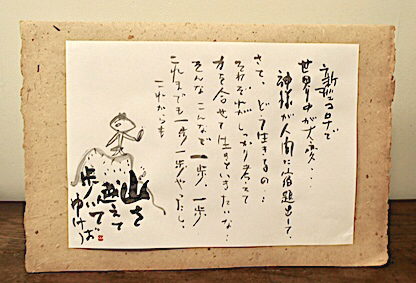 新型コロナで
世界中が大変・・・
神様が人間に宿題出して、
さて、どう生きるの…
それぞれがしっかり考えて
力を合せて生きていきたいな…
そんなこんなで一歩、一歩
これまでも一歩一歩やったし、
これからも
山を
越えて
歩いて
ゆけば